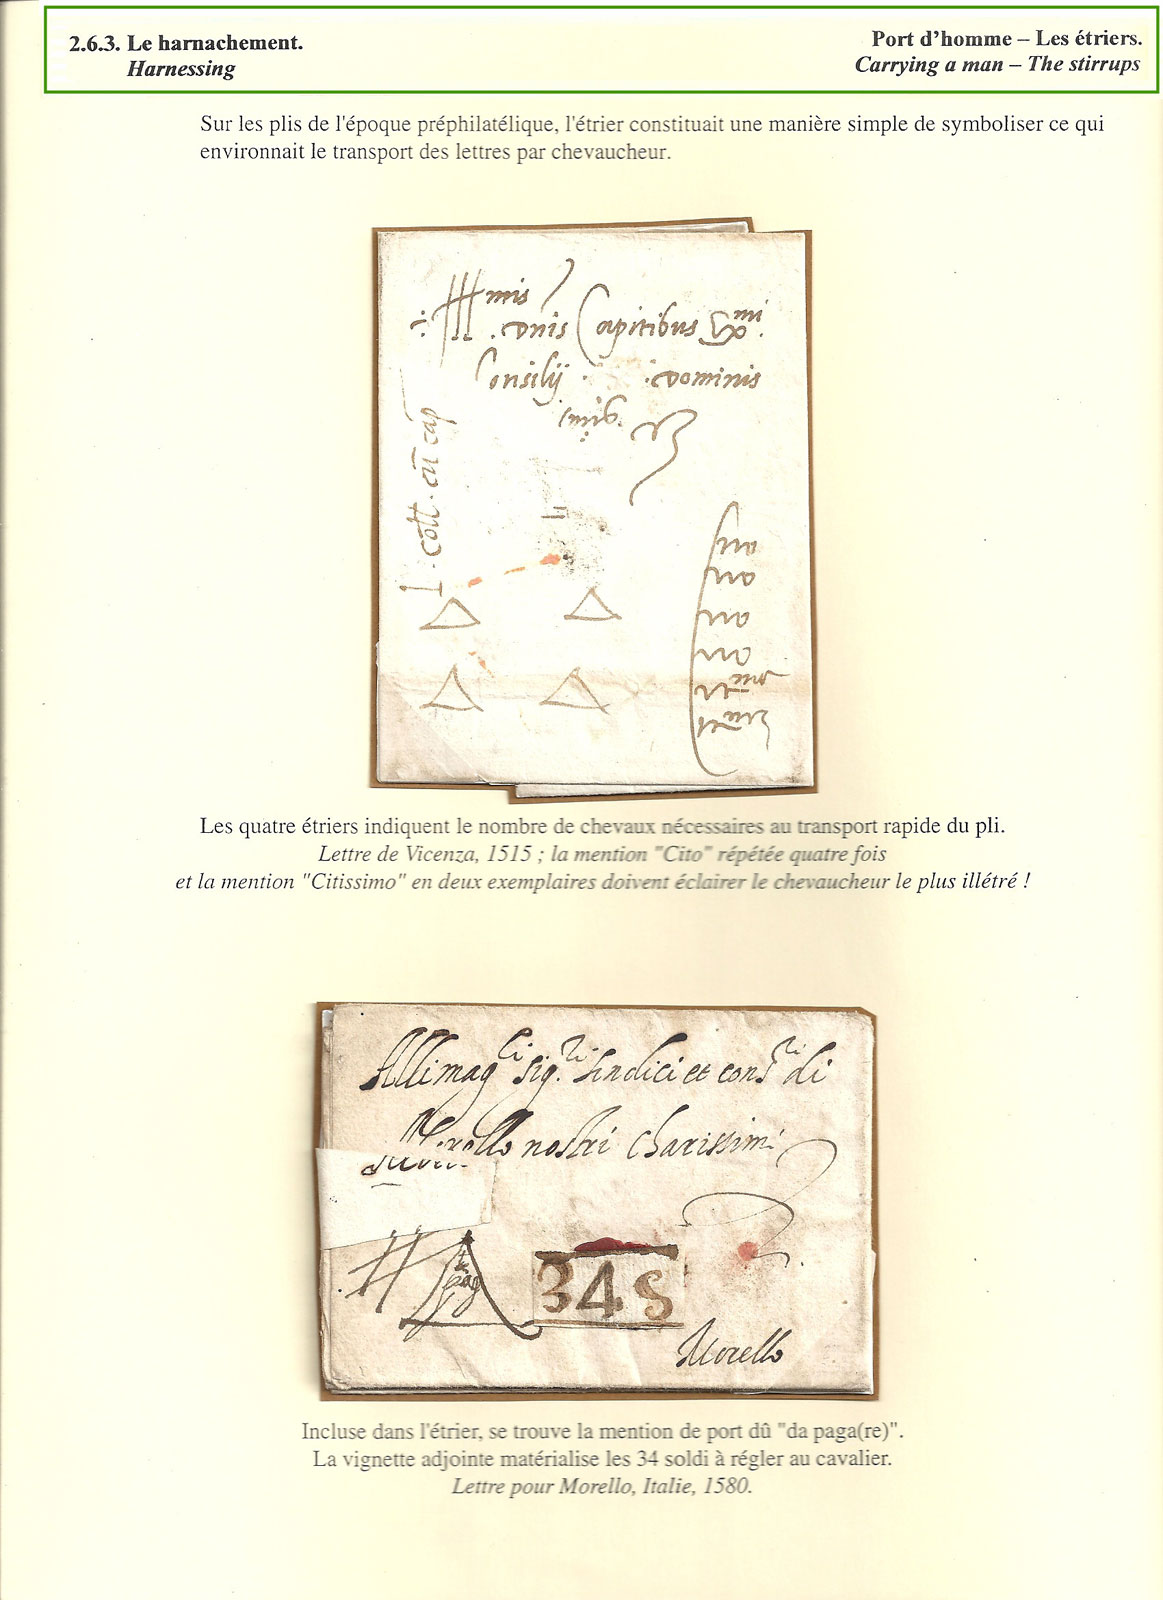 2.6.3. Le harnachement.
Harnessing
Port d'homme – Les étriers.
Carrying a man – The stirrups
Sur les plis de l'époque préphilatélique, l'étrier constituait une manière simple de symboliser ce qui
environnait le transport des lettres par chevaucheur.
mis
Capitibus
Consilij dominis
Les quatre étriers indiquent le nombre de chevaux nécessaires au transport rapide du pli.
Lettre de Vicenza, 1515 ; la mention "Cito" répétée quatre fois
et la mention "Citissimo" en deux exemplaires doivent éclairer le chevaucheur le plus illétré !
Alli mag.ci sig.ri sindici et cons.ri di
Morello nostri charissimi
34 S
Morello
Incluse dans l'étrier, se trouve la mention de port dû "da paga(re)".
La vignette adjointe matérialise les 34 soldi à régler au cavalier.
Lettre pour Morello, Italie, 1580.